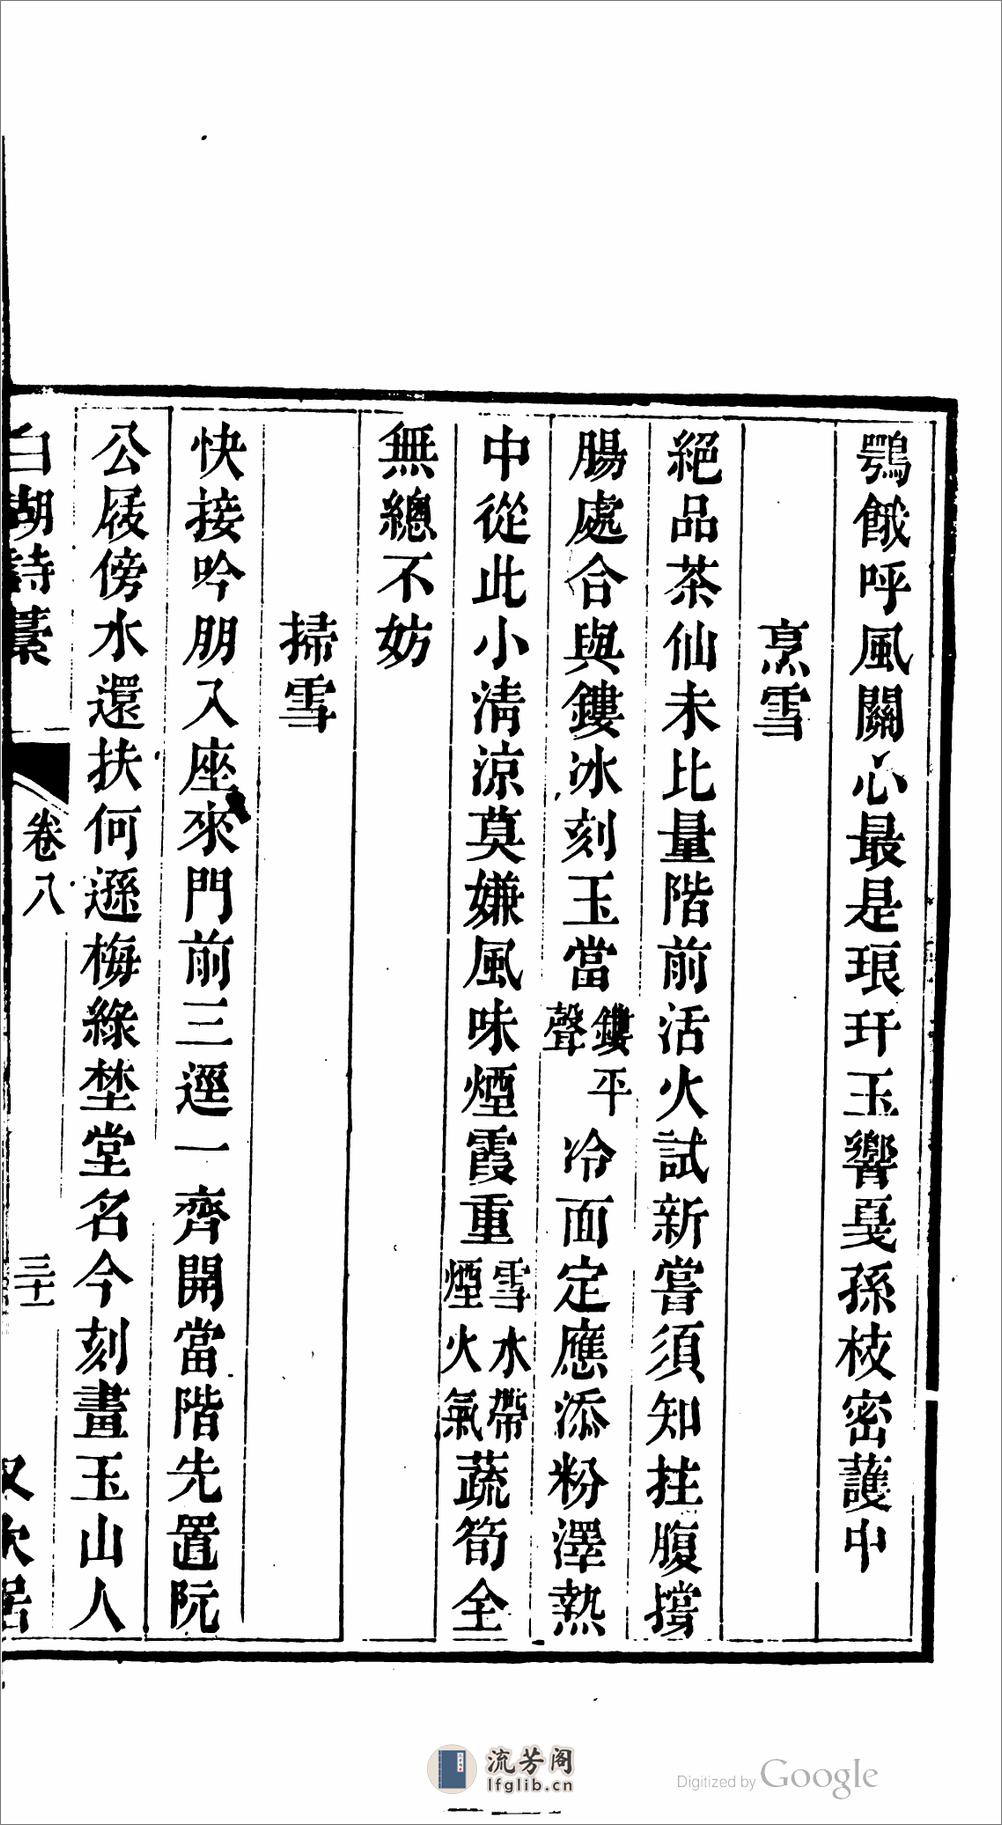 鶚餓呼風關心最是琅玕玉響戛孫枝密護中
烹雪
絕品茶仙未比量階前活火試新嘗須知拄腹撐
腸處合與鏤冰刻玉當鏤平聲冷面定應添粉澤熱
中從此小清涼莫嫌風味煙霞重雪水帶煙火氣蔬筍全
無總不妨
掃雪
快接吟朋入座來門前三逕一齊開當階先置阮
公屐傍水還扶何遜梅綠埜堂名今刻畫玉山人
白湖詩藁
卷八
三十一
又次居
流芳阁
lfglib.cn
Digitized by Google